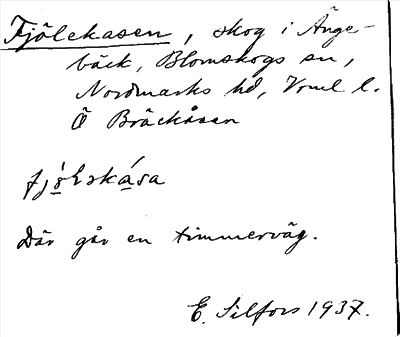 Fjölekasen, skog i Änge-
bäck, Blomskogs sn,
Nordmarks hd, Vrml l.
Å Bräckåsan
Där går en timmerväg.
E. Silfors 1937.